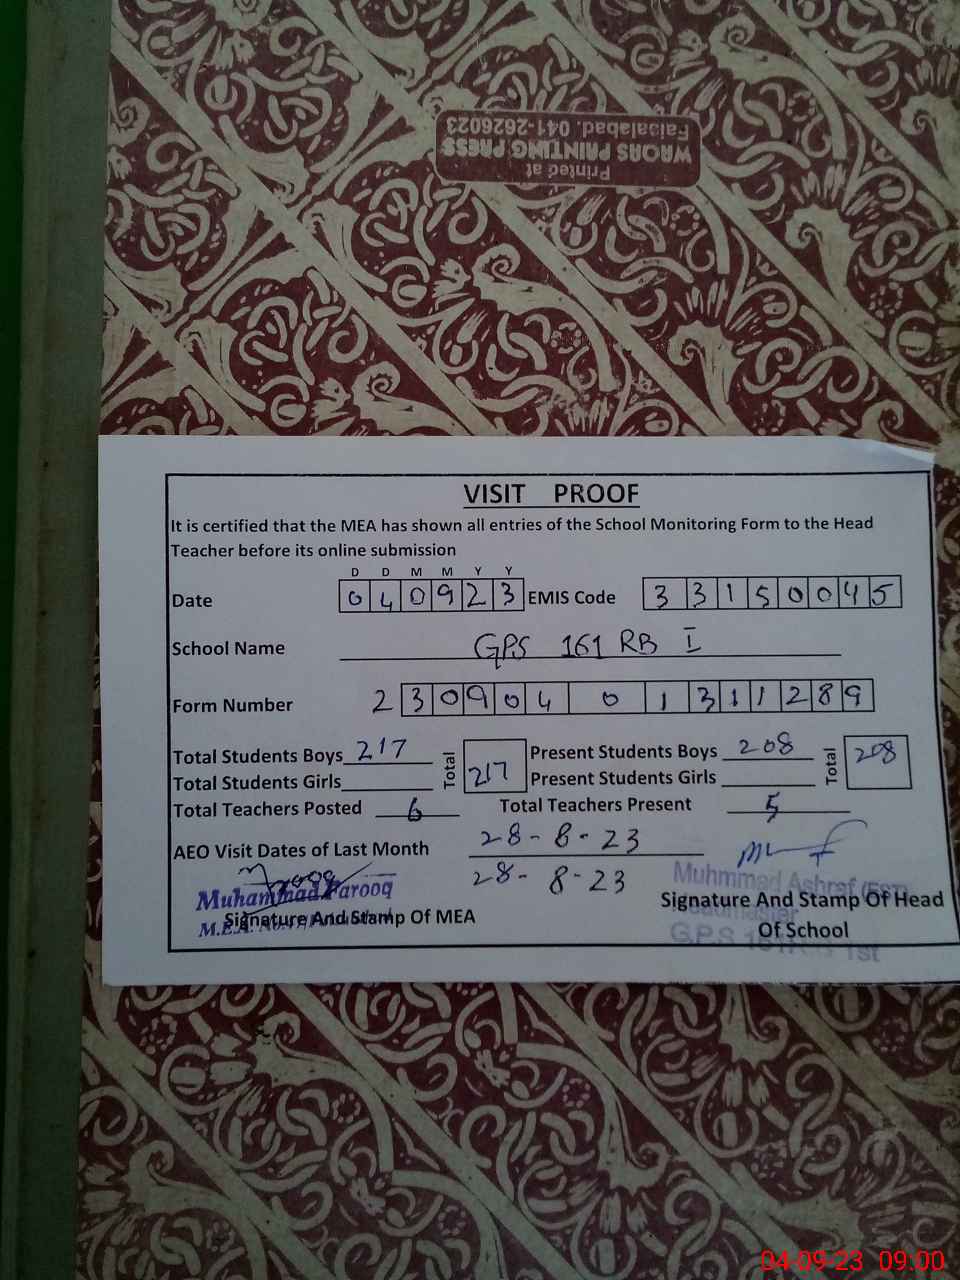 Printed at
WAQAS PRINTING PRESS
Faisalabad. 041-2626023
VISIT PROOF
It is certified that the MEA has shown all entries of the School Monitoring Form to the Head
Teacher before its online submission
D D M M Y Y
Date 040923 EMIS Code 33150045
School Name GPS 161 RB I
Form Number 23090401311289
Total Students Boys 217 Total 217 Present Students Boys 208 Total 208
Total Students Girls Present Students Girls
Total Teachers Posted 6 Total Teachers Present 5
AEO Visit Dates of Last Month 28-8-23
28-8-23
Muhammad Farooq
M.E.A.
Signature And Stamp Of MEA
Muhmmad Ashraf (EST)
Headmaster
G.P.S 161 1st
Signature And Stamp Of Head
Of School
04-09-23 09:00